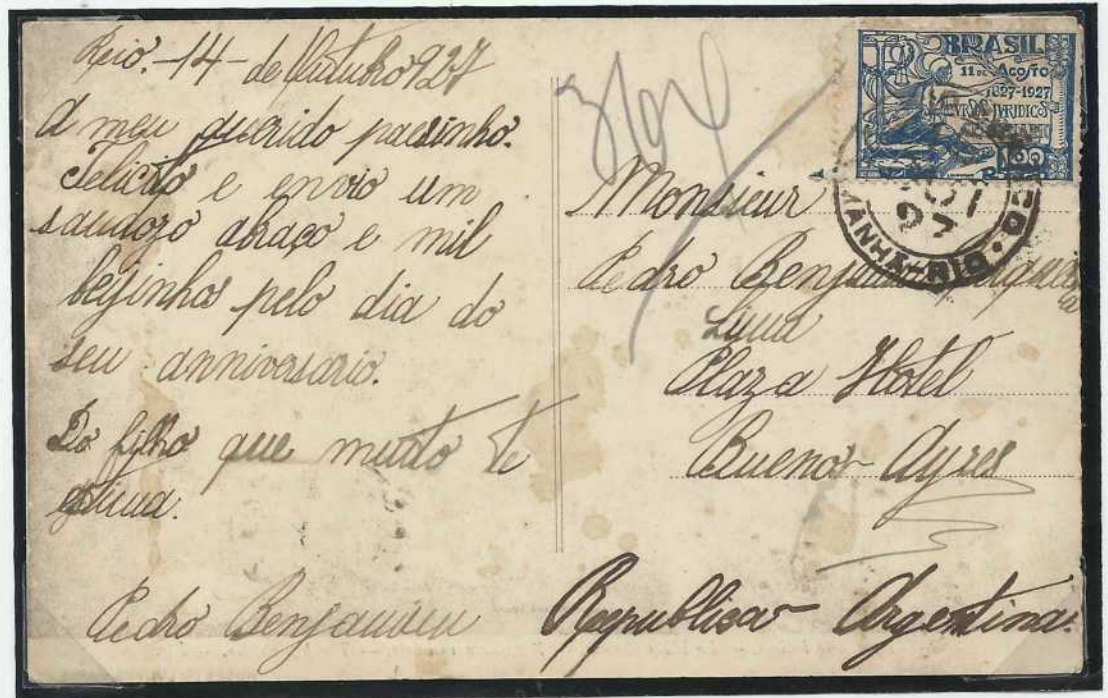 Rio. -14- de Outubro 927
A meu querido paesinho.
Felicito e envio um
saudozo abraço e mil
beijinhos pelo dia do
seu anniversario.
Do filho que muito te
estima.
Pedro Benjamin
BRASIL
11 DE AGOSTO
1827-1927
CURSOS JURIDICOS
27
MANHÃ-RIO
Monsieur
Pedro Benjamin
Lima
Plaza Hotel
Buenos Ayres
Republica Argentina.